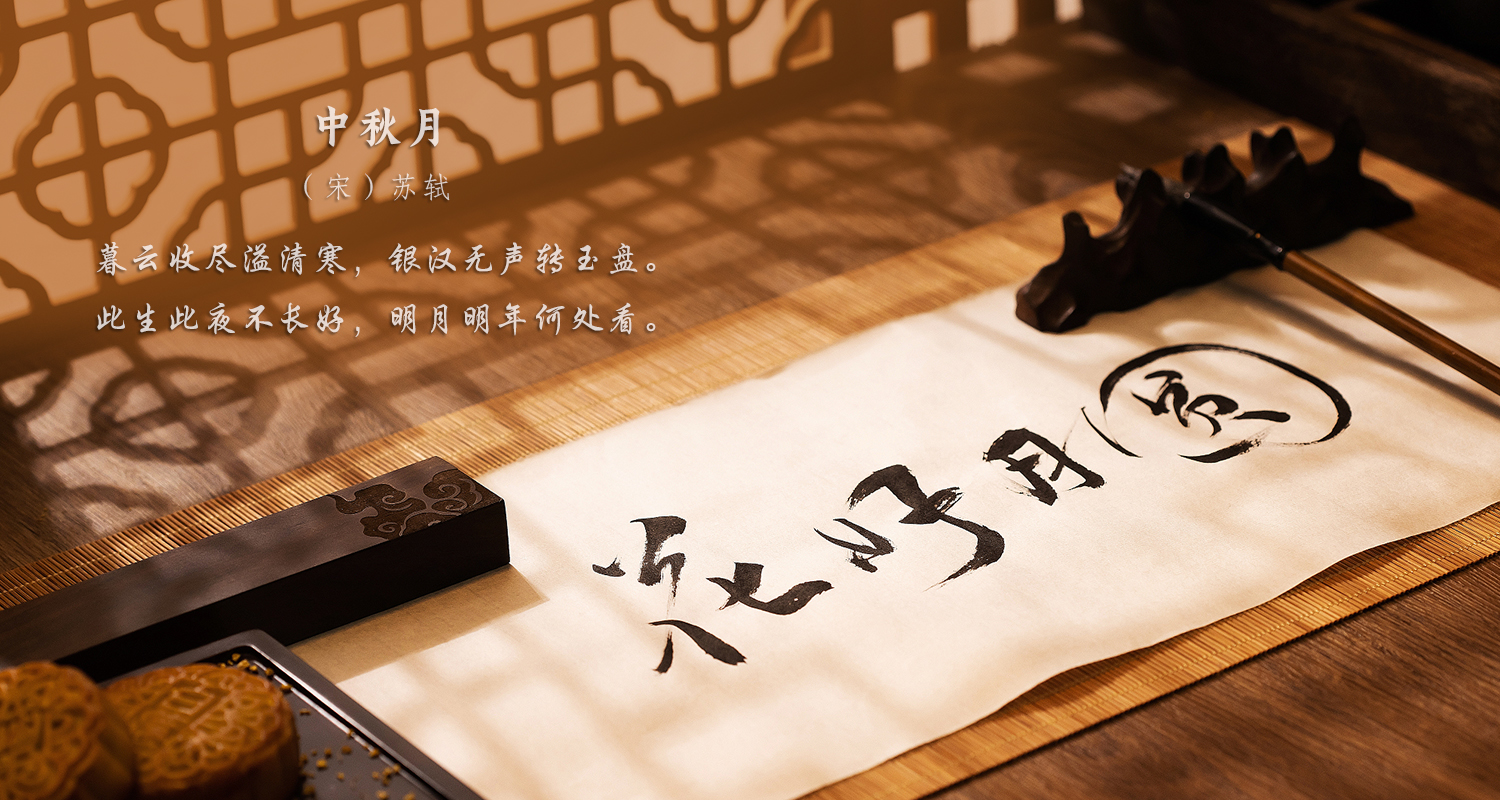 中秋月
（宋）苏轼
暮云收尽溢清寒，银汉无声转玉盘。
此生此夜不长好，明月明年何处看。
花好月圆